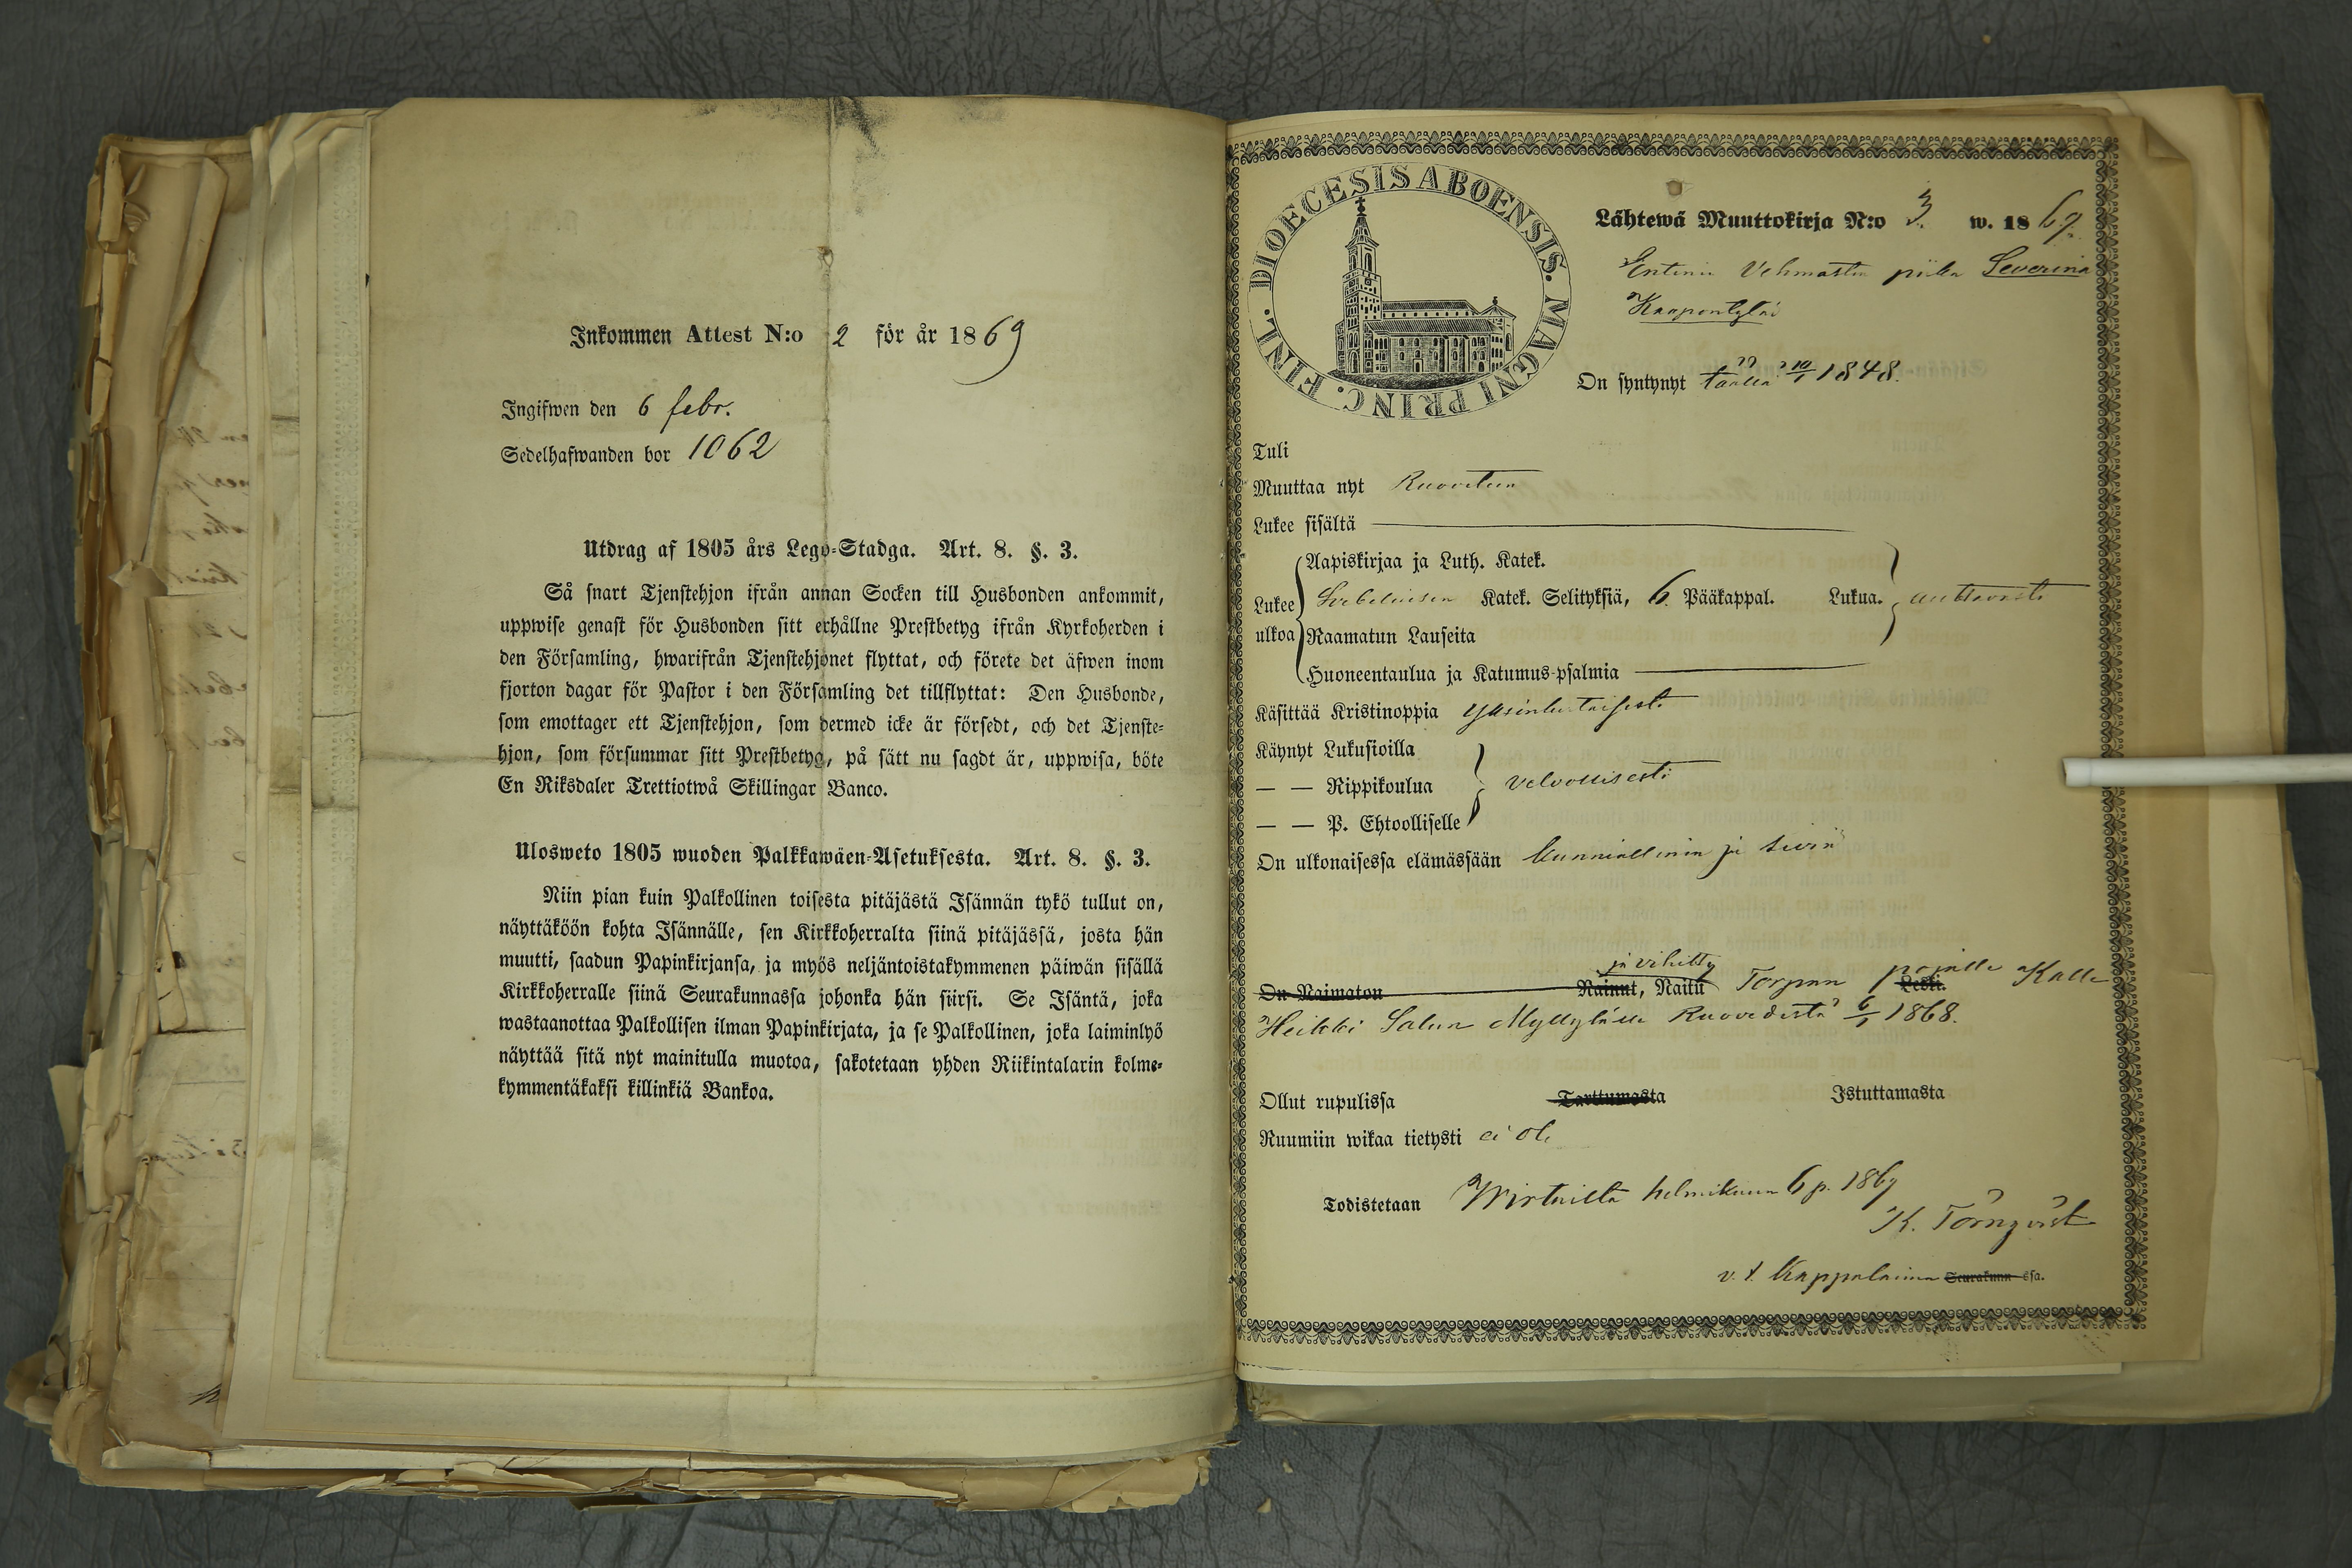 Inkommen Attest N:o 2 för år 1869
Ingifwen den 6 febr.
Sedelhafwanden bor 1062
Utdrag af 1805 års Lego-Stadga. Art. 8. §. 3.
Så snart Tjenstehjon ifrån annan Socken till Husbonden ankommit,
uppwise genast för Husbonden sitt erhållne Prestbetyg ifrån Kyrkoherden i
den Församling, hwarifrån Tjenstehjonet flyttat, och förete det äfwen inom
fjorton dagar för Pastor i den Församling det tillflyttat: Den Husbonde,
som emottager ett Tjenstehjon, som dermed icke är försedt, och det Tjenste-
hjon, som försummar sitt Prestbetyg, på sätt nu sagdt är, uppwisa, böte
En Riksdaler Trettiotwå Skillingar Banco.
Ulosweto 1805 wuoden Palkkawäen-Asetuksesta. Art. 8. §. 3.
Niin pian kuin Palkollinen toisesta pitäjästä Isännän tykö tullut on,
näyttäköön kohta Isännälle, sen Kirkkoherralta siinä pitäjässä, josta hän
muutti, saadun Papinkirjansa, ja myös neljäntoistakymmenen päiwän sisällä
Kirkkoherralle siinä Seurakunnassa johonka hän siirsi. Se Isäntä, joka
wastaanottaa Palkollisen ilman Papinkirjata, ja se Palkollinen, joka laiminlyö
näyttää sitä nyt mainitulla muotoa, sakotetaan yhden Riikintalarin kolme-
kymmentäkaksi killinkiä Bankoa.
DIOECESIS ABOENSIS. MAGNI PRINC. FINL.
Lähtewä Muuttokirja N:o 3. w. 1869.
Entinen Vehmastin piika Severina
Kaapontytär
On syntynyt täällä 10/1 1848.
Tuli
Muuttaa nyt Ruoveteen
Lukee sisältä
Aapiskirjaa ja Luth. Katek.
Lukee ulkoa Svebeliusen Katek. Selityksiä, 6. Pääkappal. Lukua. auttavasti
Raamatun Lauseita
Huoneentaulua ja Katumus-psalmia
Käsittää Kristinoppia yksinkertaisesti
Käynyt Lukusioilla
— — Rippikoulua velvollisesti
— — P. Ehtoolliselle
On ulkonaisessa elämässään kunniallinen ja siviä
ja vihitty
On Naimaton Nainut, Naitu Torpan pojalle Leski. Kalle
Heikki Salun Myllylälle Ruovedestä 6/1 1868.
Ollut rupulissa Tarttumasta Istuttamasta
Ruumiin wikaa tietysti ei ole
Todistetaan Wirtailla helmikuun 6 p. 1869
K. Törnqvist
v.t. Kappalainen Seurakunn ssa.